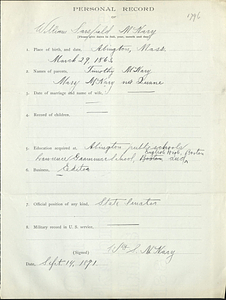 PERSONAL RECORD
OF
1796
William Sarsfield McNary
1. Place of birth, and date, Abington, Mass.
March 29, 1863
2. Names of parents, Timothy McNary
Mary McNary née Duane
3. Date of marriage and name of wife,
4. Record of children,
5. Education acquired at Abington public schools,
English High, Boston
Lawrence Grammar School, Boston and
6. Business, Editor
7. Official position of any kind, State Senator
8. Military record in U. S. service,
(Signed) Wm S. McNary
Date, Sept. 14, 1891